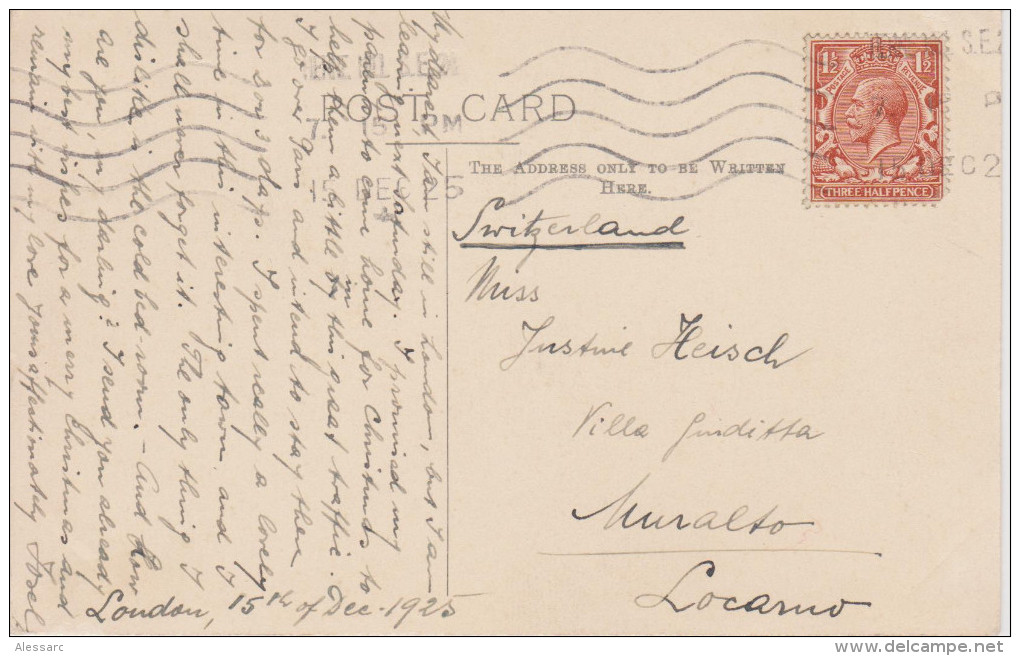 POST CARD
THE ADDRESS ONLY TO BE WRITTEN
HERE.
7 15 PM
15 DEC 25
1½ 1½
POSTAGE REVENUE
THREE HALFPENCE
London, 15th of Dec. 1925
My dearest I am still in London, but I am
leaving next Sunday. I promised my
parents to come home for Christmas to
help them a little in this great traffic.
I go over Paris and intend to stay there
for 2 or 3 days. I spent really a lovely
time in this interesting town and I
shall never forget it. The only thing I
dislike is the cold bed room. – And how
are you, my darling? I send you already
my best wishes for a merry Christmas and
remain with my love Yours affectionately
Switzerland
Miss
Justine Heisch
Villa Giuditta
Muralto
Locarno
Alessarc
delcampe.net